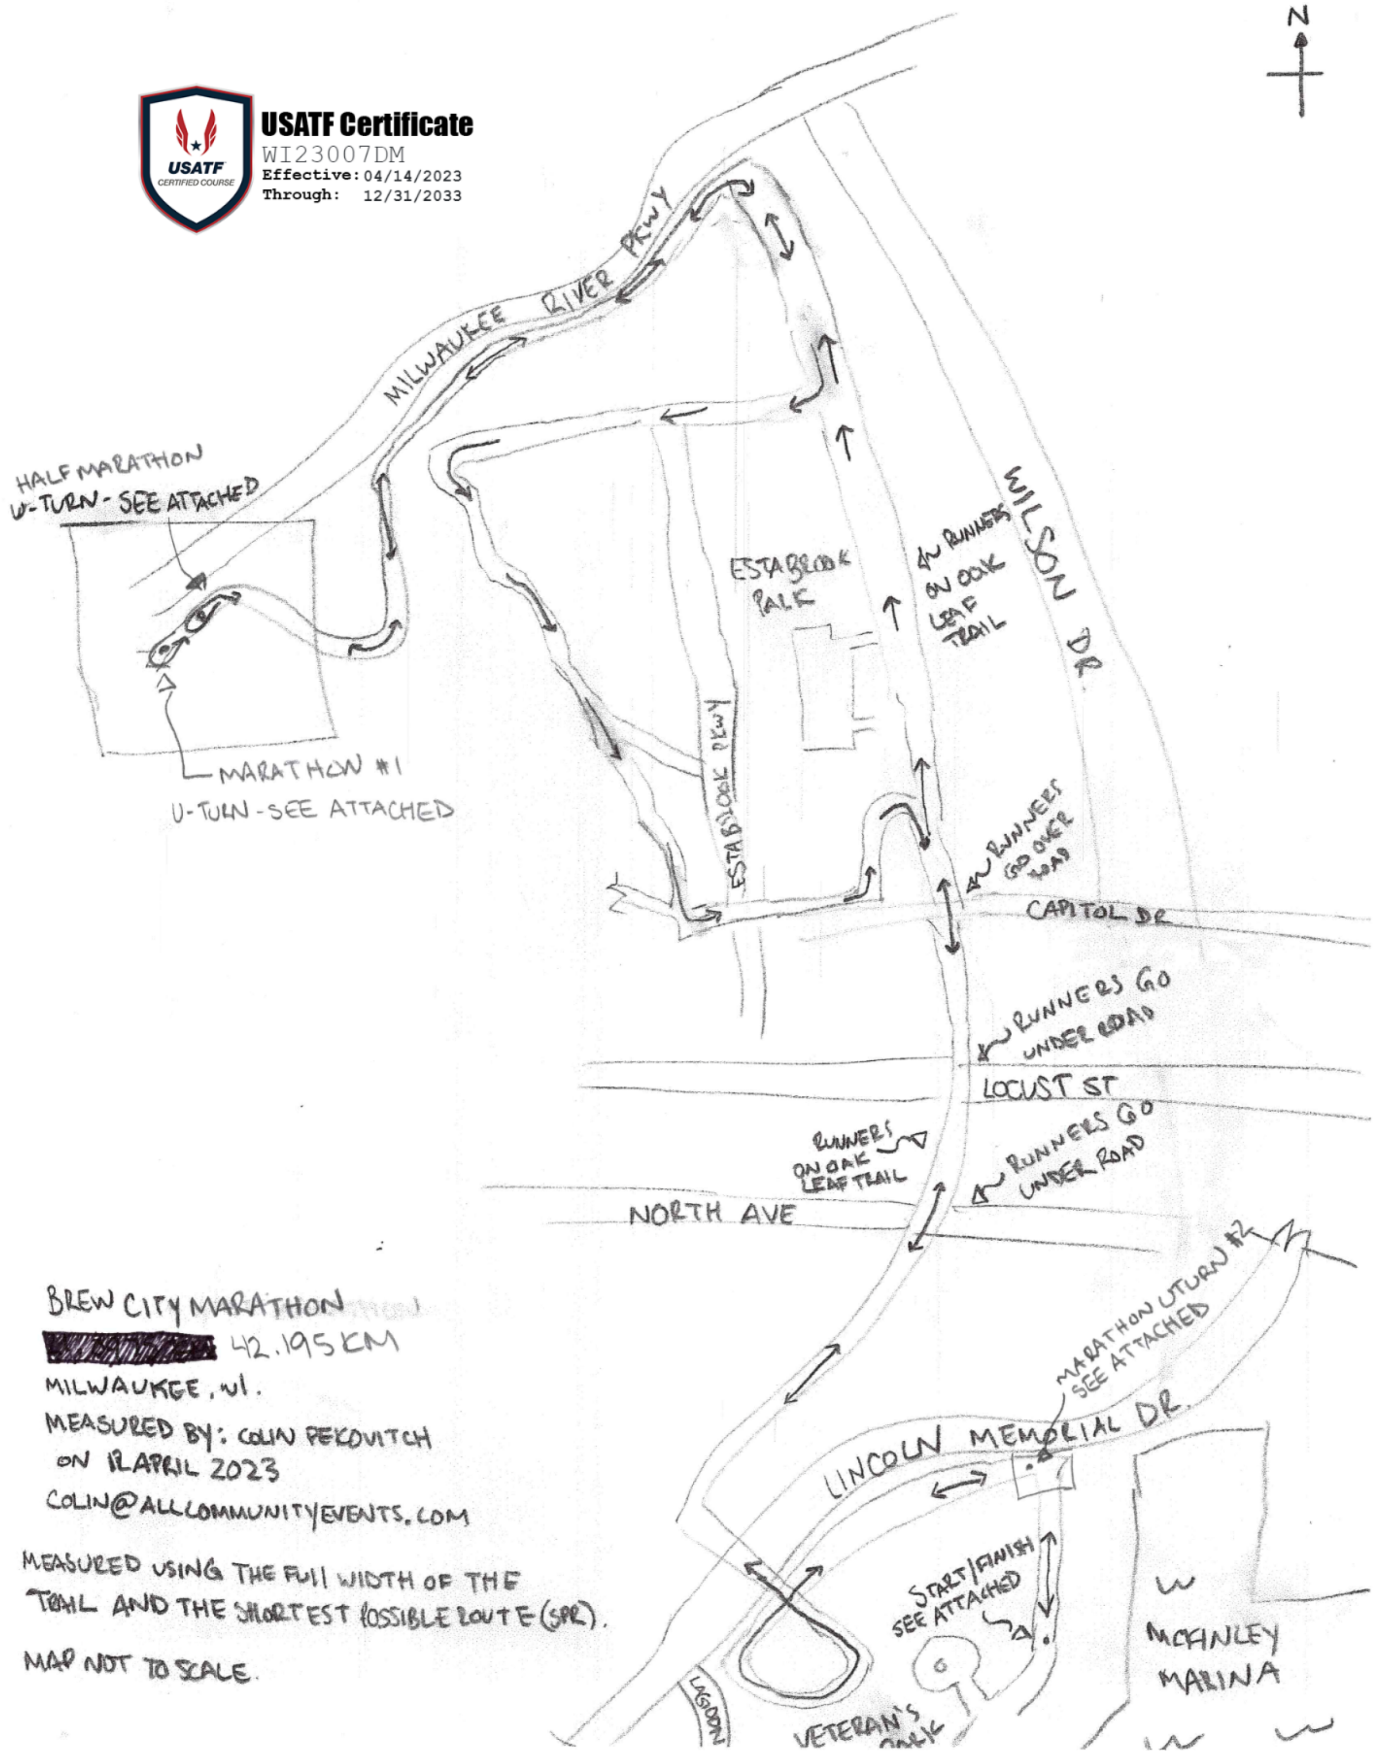 N
USATF Certificate
WI23007DM
Effective: 04/14/2023
Through: 12/31/2033
USATF
CERTIFIED COURSE
MILWAUKEE RIVER PKWY
HALF MARATHON
U-TURN - SEE ATTACHED
MARATHON #1
U-TURN - SEE ATTACHED
ESTABROOK
PARK
RUNNERS
ON OAK
LEAF
TRAIL
WILSON DR.
ESTABROOK PKWY
RUNNERS
GO OVER
ROAD
CAPITOL DR
RUNNERS GO
UNDER ROAD
LOCUST ST
RUNNERS
ON OAK
LEAF TRAIL
RUNNERS GO
UNDER ROAD
NORTH AVE
MARATHON UTURN #2
SEE ATTACHED
LINCOLN MEMORIAL DR.
START/FINISH
SEE ATTACHED
MCKINLEY
MARINA
LAGOON
VETERAN'S
PARK
BREW CITY MARATHON
42.195 KM
MILWAUKEE, WI.
MEASURED BY: COLIN PEKOVITCH
ON 12 APRIL 2023
COLIN@ALLCOMMUNITYEVENTS.COM
MEASURED USING THE FULL WIDTH OF THE
TRAIL AND THE SHORTEST POSSIBLE ROUTE (SPR).
MAP NOT TO SCALE.